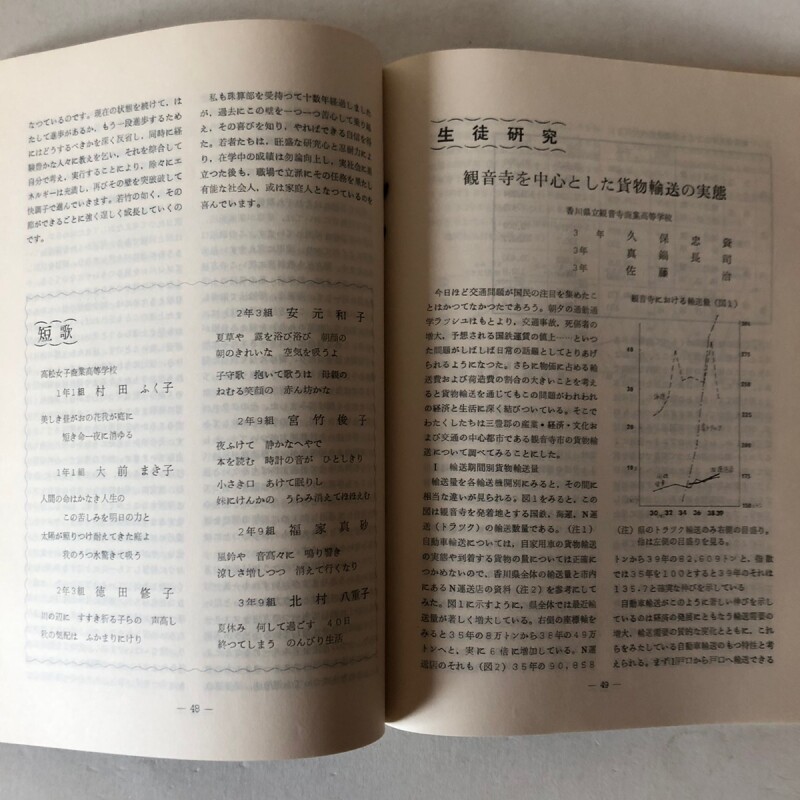 なつているのです。現在の状態を続けて、は
たして進歩があるか、もう一段進歩するため
にはどうするべきかを深く反省し、同時に経
験豊かな人々に教えを乞い、それを綜合して
自分で考え、実行することにより、徐々にエ
ネルギーは充満し、再びその壁を突破破して
快調子で進んでいきます。若竹の如く、その
節ができるごとに強く逞しく成長していくの
です。
私も珠算部を受持つて十数年経過しました
が、過去にこの壁を一つ一つ苦心して乗り越
え、その喜びを知り、やればできる自信を得
た。若者たちは、旺盛な研究心と忍耐力によ
り、在学中の成績は勿論向上し、実社会に
立つた後も、職場で立派にその任務を果たし
有能な社会人、或は家庭人となつているのを
喜んでいます。
短歌
高松女子商業高等学校
1年1組 村田 ふく子
美しき昼がおの花我が庭に
短き命一夜に消ゆる
1年1組 大前 まき子
人間の命はかなき人生の
この苦しみを明日の力と
太陽が照りつけ耐えてきた庭よ
我のうつ水驚きて吸う
2年3組 徳田 修子
川の辺に すすき祈る子らの 声高し
秋の気配は ふかまりにけり
2年3組 安元 和子
夏草や 露を浴び浴び 朝顔の
朝のきれいな 空気を吸うよ
子守歌 抱いて歌うは 母親の
ねむる笑顔の 赤ん坊かな
2年9組 宮竹 俊子
夜ふけて 静かなへやで
本を読む 時計の音が ひとしきり
小さき口 あけて眠りし
姉にけんかの うらみ消えてほほえむ
2年9組 福家 真砂
風鈴や 音高々に 鳴り響き
涼しさ増しつつ 消えて行くなり
3年9組 北村 八重子
夏休み 何して過ごす 40日
終つてしまう のんびり生活
— 48 —
生徒研究
観音寺を中心とした貨物輸送の実態
香川県立観音寺商業高等学校
3年 久保忠
3年 真鍋長司
3年 佐藤治
今日ほど交通問題が国民の注目を集めたこ
とはかつてなかつたであろう。朝夕の通勤通
学ラッシュはもとより、交通事故、死傷者の
増大、予想される国鉄運賃の値上――といつ
た問題がしばしば日常の話題としてとりあげ
られるようになつた。さらに物価に占める輸
送費および荷造費の割合の大きいことを考え
ると貨物輸送を通じてもこの問題がわれわれ
の経済と生活に深く結びついている。そこで
わたくしたちは三豊郡の産業・経済・文化お
よび交通の中心都市である観音寺市の貨物輸
送について調べてみることにした。
I 輸送期間別貨物輸送量
輸送量を各輸送機関別にみると、その間に
相当な違いが見られる。図1をみると、この
図は観音寺を発着地とする国鉄、海運、N運
送(トラック)の輸送数量である。(注1)
自動車輸送については、自家用車の貨物輸送
の実態や到着する貨物の量については正確に
つかめないので、香川県全体の輸送量と市内に
あるN運送店の資料(注2)を参考にして
みた。図1に示すように、県全体では最近輸
送量が著しく増大している。右側の座標軸を
みると35年の8万トンから38年の49万
トンへと、実に6倍に増加している。N運
送店のそれも(図2)35年の90,858
観音寺における輸送量(図1)
トラック
30 32 34 36 38 39
(注) 県のトラック輸送のみ右側の目盛り。
他は左側の目盛を見る。
トンから39年の82,609トンと、指数
では35年を100とすると39年のそれは
135.7と確実な伸びを示している
自動車輸送がこのように著しい伸びを示して
いるのは経済の発展にともなう輸送需要の
増大、輸送需要の質的な変化とともに、これ
らをみたしている自動車輸送のもつ特性と考
えられる。まず1戸口から戸口へ輸送できる
— 49 —